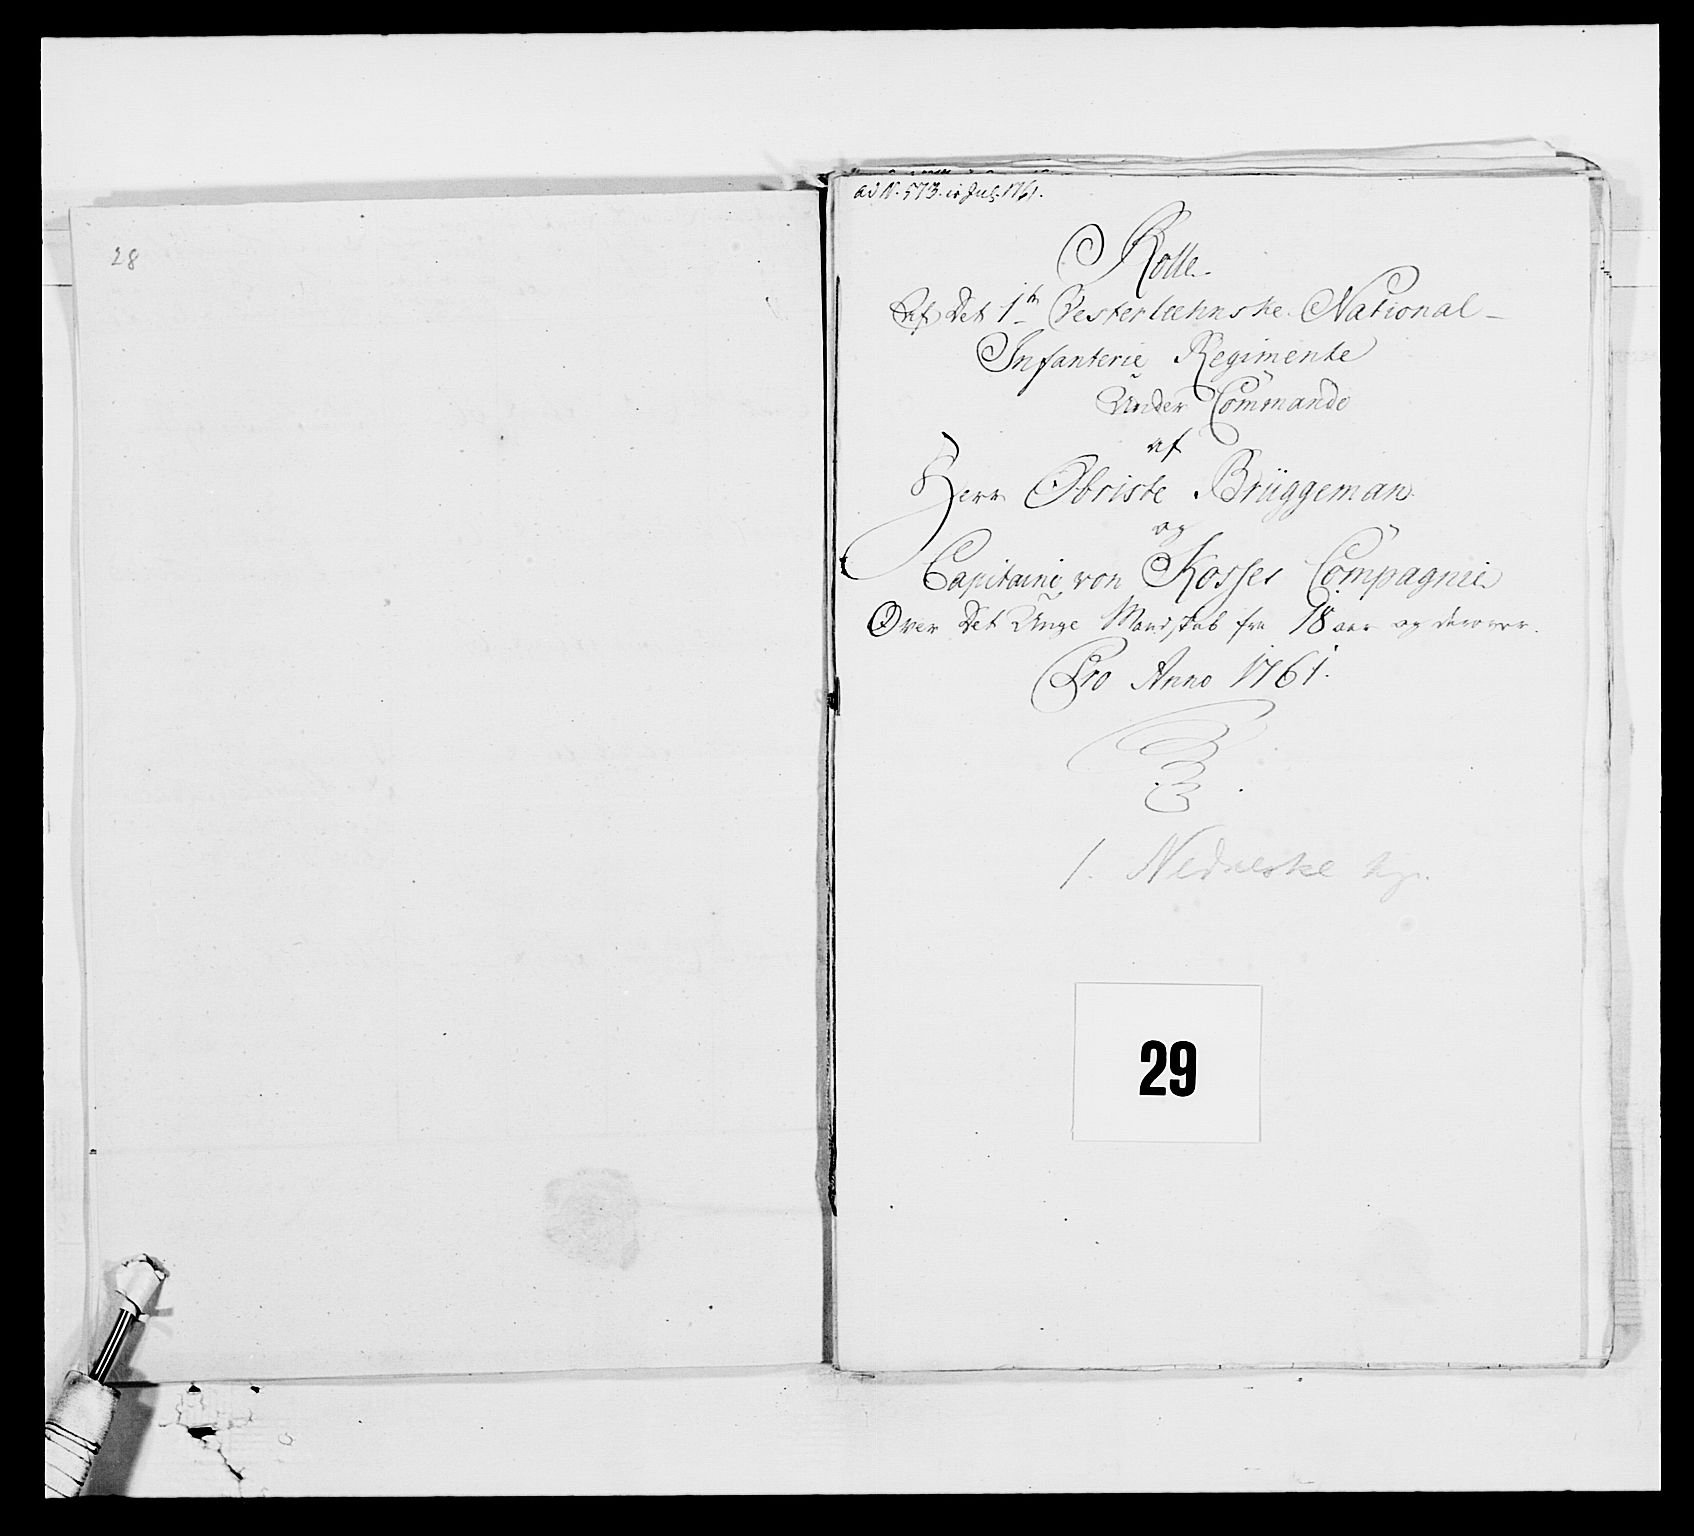 28
ad N. 573. in July 1761.
Rolle
Af Det 1te Vesterlehnske National-
Infanterie Regimente
Under Commando
af
Herr Obriste Brüggeman
og
Capitaine von Kosses Compagnie
Over Det Unge Mandskab fra 18 aar og derover.
Pro Anno 1761.
1. Nedneske
29